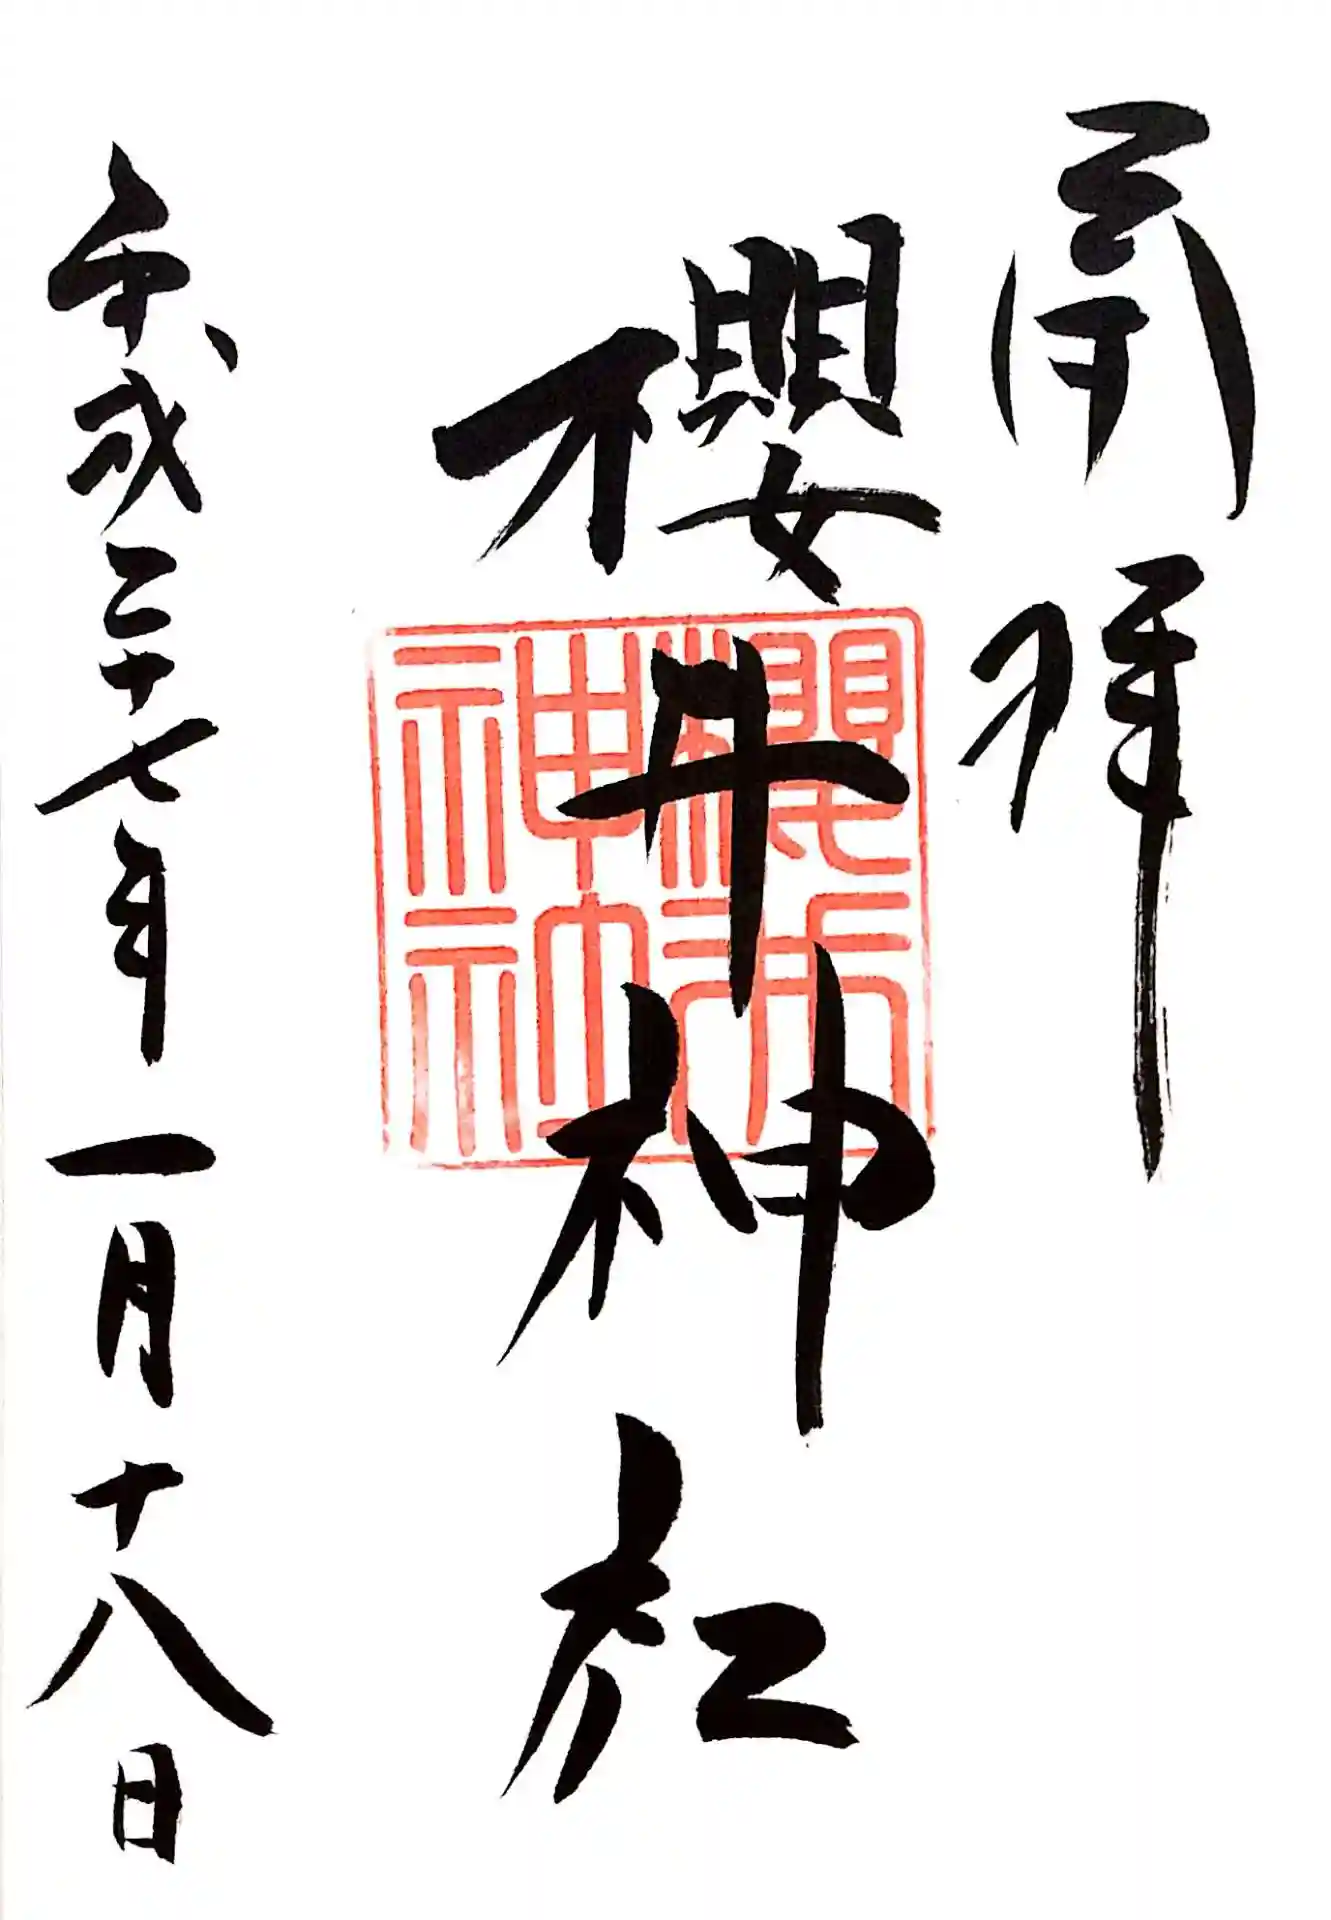 奉拝
櫻井神社
櫻井
神社
平成二十七年一月十八日